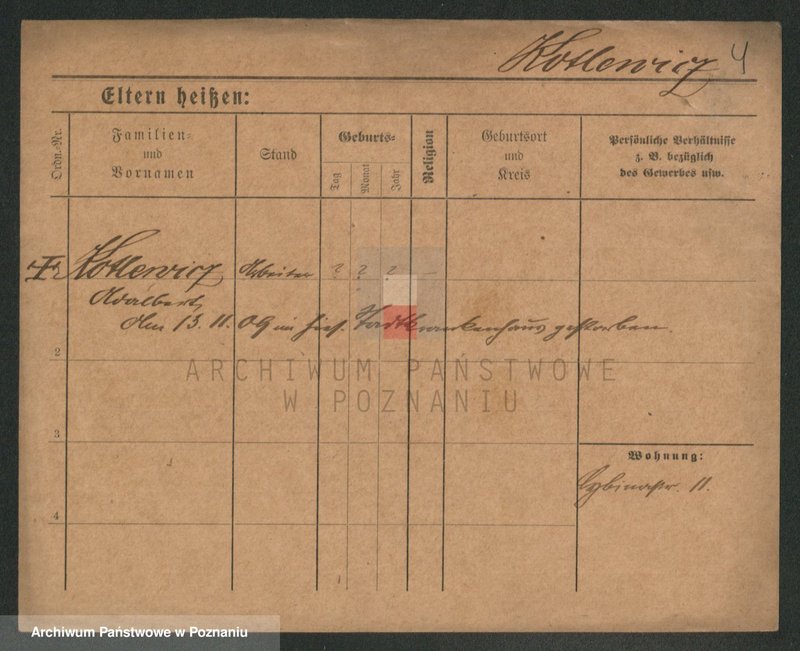 Kotlewicz 4
Eltern heißen:
Ordn.-Nr.
Familien-
und
Vornamen
Stand
Geburts-
Tag
Monat
Jahr
Religion
Geburtsort
und
Kreis
Persönliche Verhältnisse
z. B. bezüglich
des Gewerbes usw.
Kotlewicz Arbeiter ? ? ? —
Adalbert
Am 13. 11. 09 im hies. Stadtkrankenhaus gestorben.
2
ARCHIWUM PAŃSTWOWE
W POZNANIU
3
Wohnung:
Cybinastr. 11.
4
Archiwum Państwowe w Poznaniu